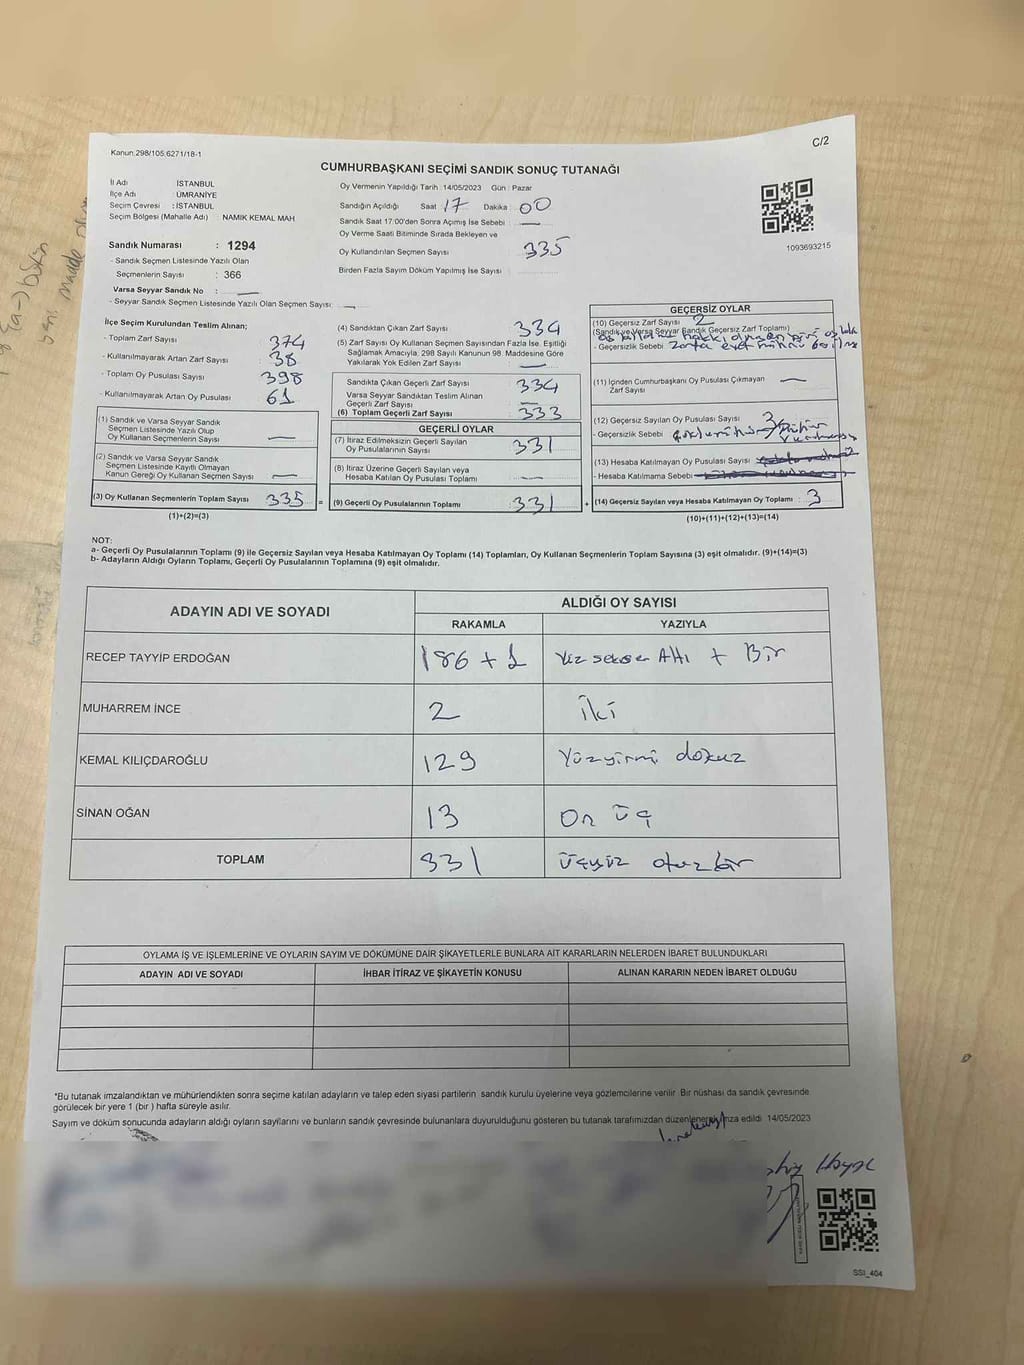 C/2
Kanun.298/105.6271/18-1
CUMHURBAŞKANI SEÇİMİ SANDIK SONUÇ TUTANAĞI
İl Adı İSTANBUL
İlçe Adı : ÜMRANİYE
Seçim Çevresi : İSTANBUL
Seçim Bölgesi (Mahalle Adı) : NAMIK KEMAL MAH
Sandık Numarası : 1294
- Sandık Seçmen Listesinde Yazılı Olan
Seçmenlerin Sayısı : 366
Varsa Seyyar Sandık No :
- Seyyar Sandık Seçmen Listesinde Yazılı Olan Seçmen Sayısı:
Oy Vermenin Yapıldığı Tarih :14/05/2023 Gün : Pazar
Sandığın Açıldığı Saat 17 Dakika : 00
Sandık Saat 17:00'den Sonra Açımış İse Sebebi
Oy Verme Saati Bitiminde Sırada Bekleyen ve
Oy Kullandırılan Seçmen Sayısı 335
Birden Fazla Sayım Döküm Yapılmış İse Sayısı
1093693215
İlçe Seçim Kurulundan Teslim Alınan;
- Toplam Zarf Sayısı 374
- Kullanılmayarak Artan Zarf Sayısı 38
- Toplam Oy Pusulası Sayısı 398
- Kullanılmayarak Artan Oy Pusulası 61
(1) Sandık ve Varsa Seyyar Sandık
Seçmen Listesinde Yazılı Olup
Oy Kullanan Seçmenlerin Sayısı
(2) Sandık ve Varsa Seyyar Sandık
Seçmen Listesinde Kayıtlı Olmayan
Kanun Gereği Oy Kullanan Seçmen Sayısı
(3) Oy Kullanan Seçmenlerin Toplam Sayısı 335 =
(1)+(2)=(3)
(4) Sandıktan Çıkan Zarf Sayısı 334
(5) Zarf Sayısı Oy Kullanan Seçmen Sayısından Fazla İse, Eşitliği
Sağlamak Amacıyla, 298 Sayılı Kanunun 98. Maddesine Göre
Yakılarak Yok Edilen Zarf Sayısı
Sandıkta Çıkan Geçerli Zarf Sayısı 334
Varsa Seyyar Sandıktan Teslim Alınan
Geçerli Zarf Sayısı
(6) Toplam Geçerli Zarf Sayısı 333
GEÇERLİ OYLAR
(7) İtiraz Edilmeksizin Geçerli Sayılan
Oy Pusulalarının Sayısı 331
(8) İtiraz Üzerine Geçerli Sayılan veya
Hesaba Katılan Oy Pusulası Toplamı
(9) Geçerli Oy Pusulalarının Toplamı 331 +
GEÇERSİZ OYLAR
(10) Geçersiz Zarf Sayısı 2
(Sandık ve Varsa Seyyar Sandık Geçersiz Zarf Toplamı)
- Geçersizlik Sebebi Zarfta evet mührü
(11) İçinden Cumhurbaşkanı Oy Pusulası Çıkmayan
Zarf Sayısı
(12) Geçersiz Sayılan Oy Pusulası Sayısı 3
- Geçersizlik Sebebi
(13) Hesaba Katılmayan Oy Pusulası Sayısı
- Hesaba Katılmama Sebebi
(14) Geçersiz Sayılan veya Hesaba Katılmayan Oy Toplamı : 3
(10)+(11)+(12)+(13)=(14)
NOT:
a- Geçerli Oy Pusulalarının Toplamı (9) ile Geçersiz Sayılan veya Hesaba Katılmayan Oy Toplamı (14) Toplamları, Oy Kullanan Seçmenlerin Toplam Sayısına (3) eşit olmalıdır. (9)+(14)=(3)
b- Adayların Aldığı Oyların Toplamı, Geçerli Oy Pusulalarının Toplamına (9) eşit olmalıdır.
ADAYIN ADI VE SOYADI ALDIĞI OY SAYISI
RAKAMLA YAZIYLA
RECEP TAYYİP ERDOĞAN 186 + 1 Yüz seksen Altı + Bir
MUHARREM İNCE 2 iki
KEMAL KILIÇDAROĞLU 129 Yüzyirmi dokuz
SİNAN OĞAN 13 On üç
TOPLAM 331 üçyüz otuzbir
OYLAMA İŞ VE İŞLEMLERİNE VE OYLARIN SAYIM VE DÖKÜMÜNE DAİR ŞİKAYETLERLE BUNLARA AİT KARARLARIN NELERDEN İBARET BULUNDUKLARI
ADAYIN ADI VE SOYADI İHBAR İTİRAZ VE ŞİKAYETİN KONUSU ALINAN KARARIN NEDEN İBARET OLDUĞU
*Bu tutanak imzalandıktan ve mühürlendikten sonra seçime katılan adayların ve talep eden siyasi partilerin sandık kurulu üyelerine veya gözlemcilerine verilir. Bir nüshası da sandık çevresinde
görülecek bir yere 1 (bir ) hafta süreyle asılır.
Sayım ve döküm sonucunda adayların aldığı oyların sayılarını ve bunların sandık çevresinde bulunanlara duyurulduğunu gösteren bu tutanak tarafımızdan düzenlenerek imza edildi 14/05/2023
SSI_404